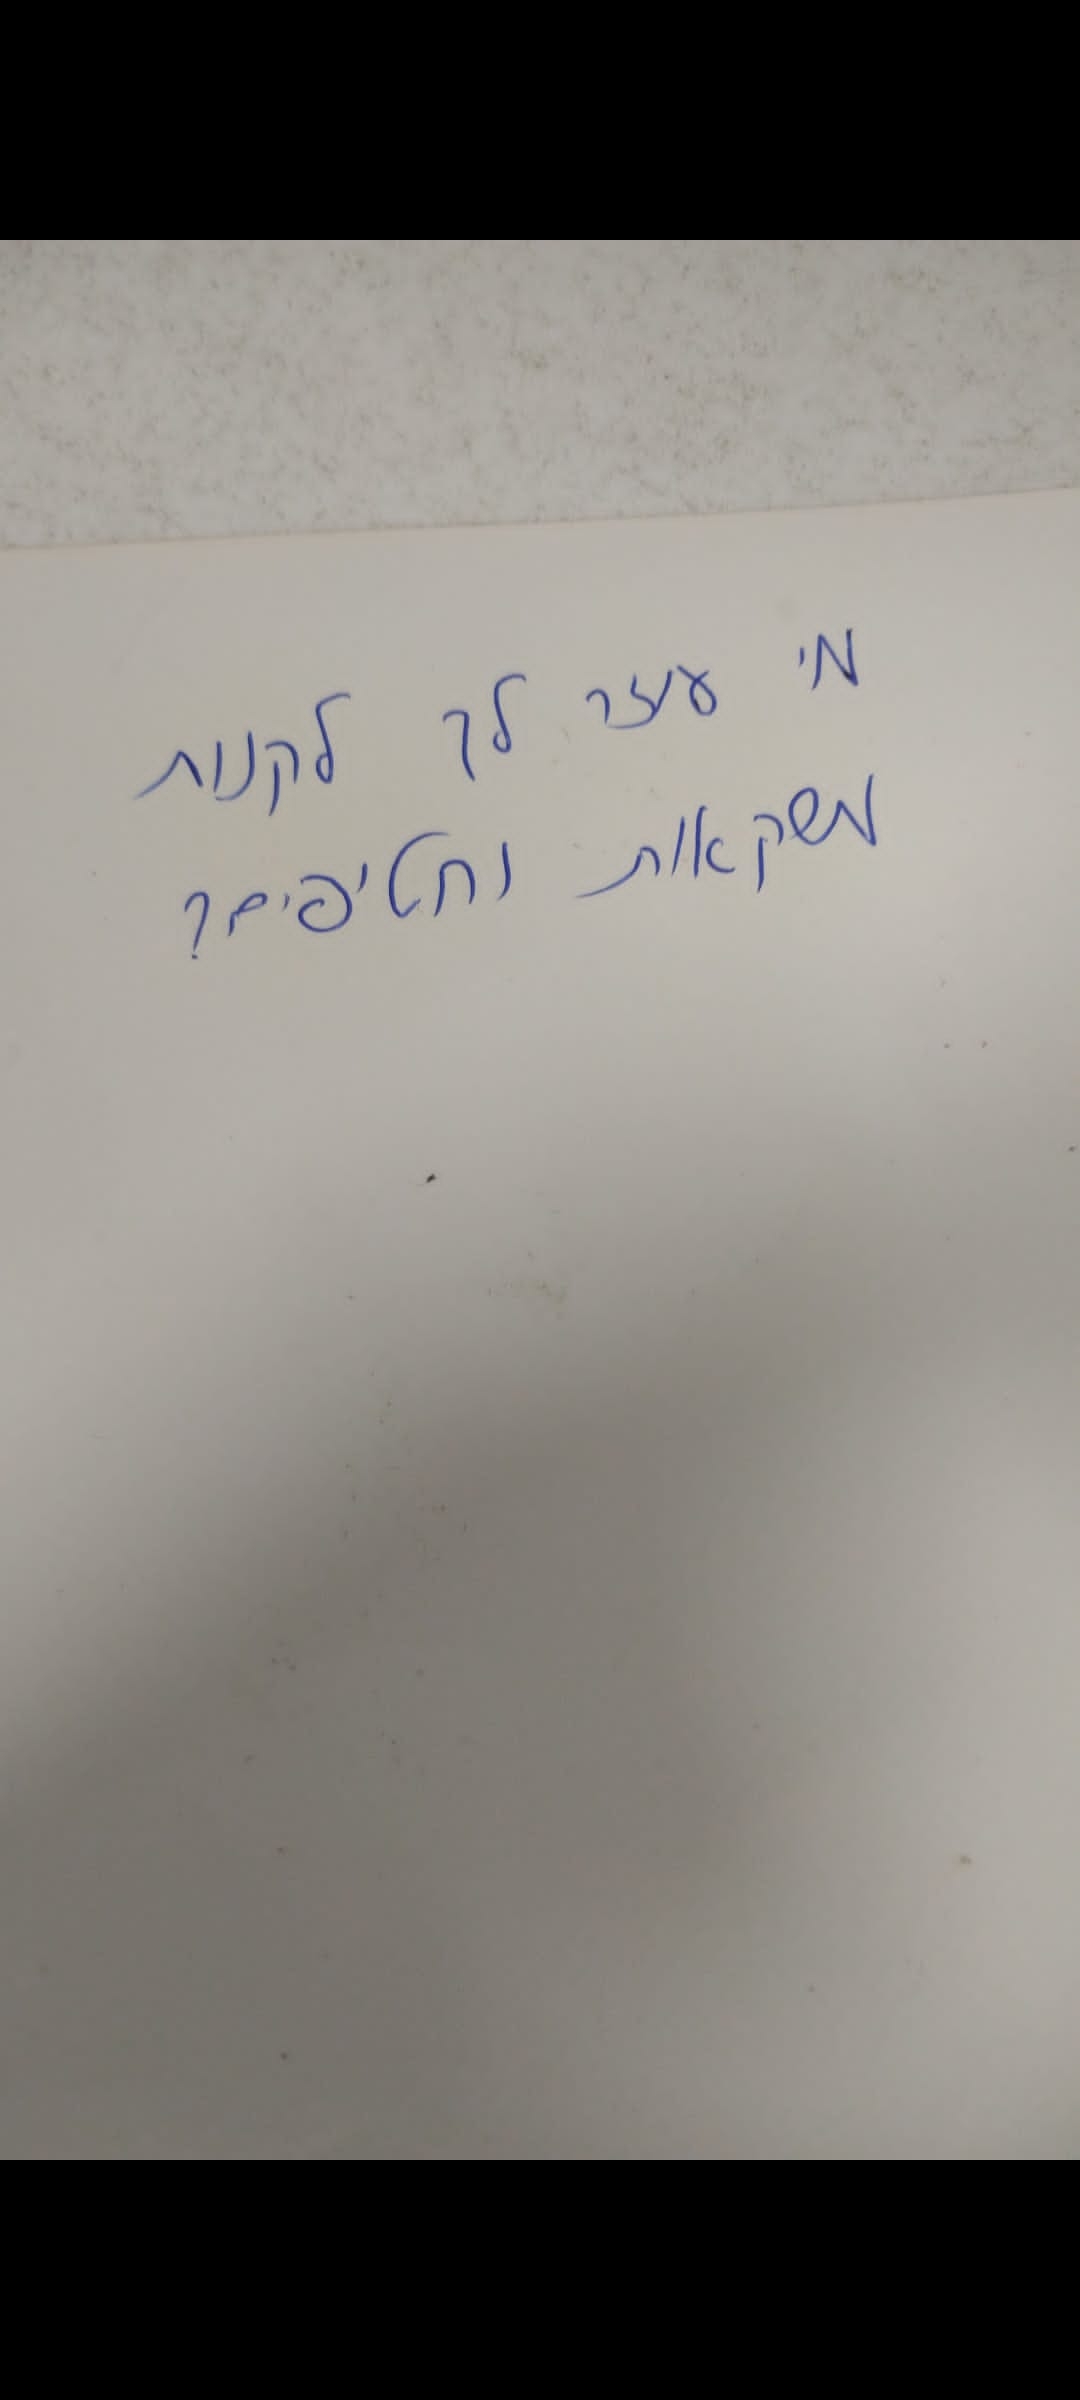 מי עוזר לך לקנות
משקאות וחטיפים?